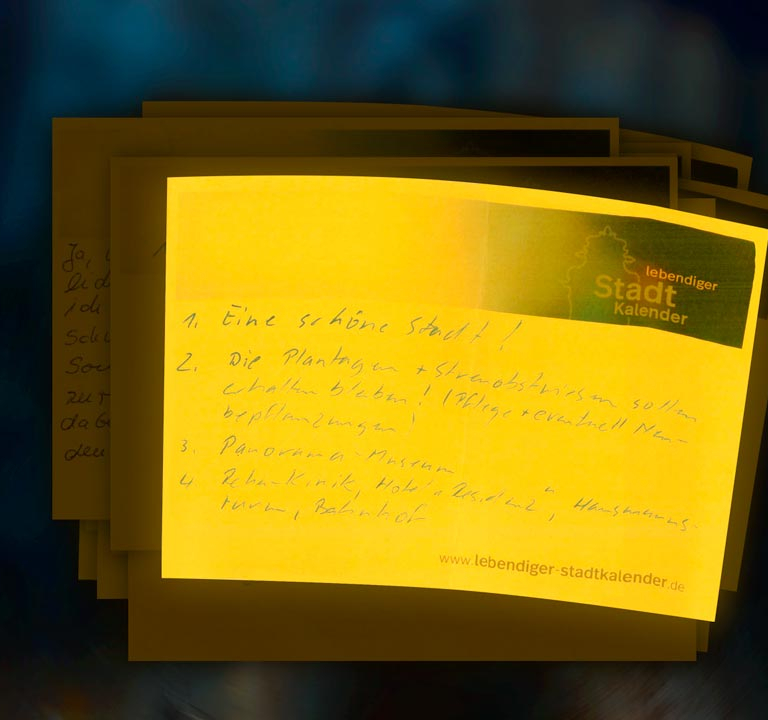 lebendiger
Stadt
Kalender
1. Eine schöne Stadt!
2. Die Plantagen + Streuobstwiesen sollten
erhalten bleiben! (Pflege + eventuell Neu-
bepflanzungen!
3. Panorama-Museum
4 Reha-Klinik, Hotel "Residenz", Hausmanns-
turm, Bahnhof
www.lebendiger-stadtkalender.de
Ja,
ich
zur
den